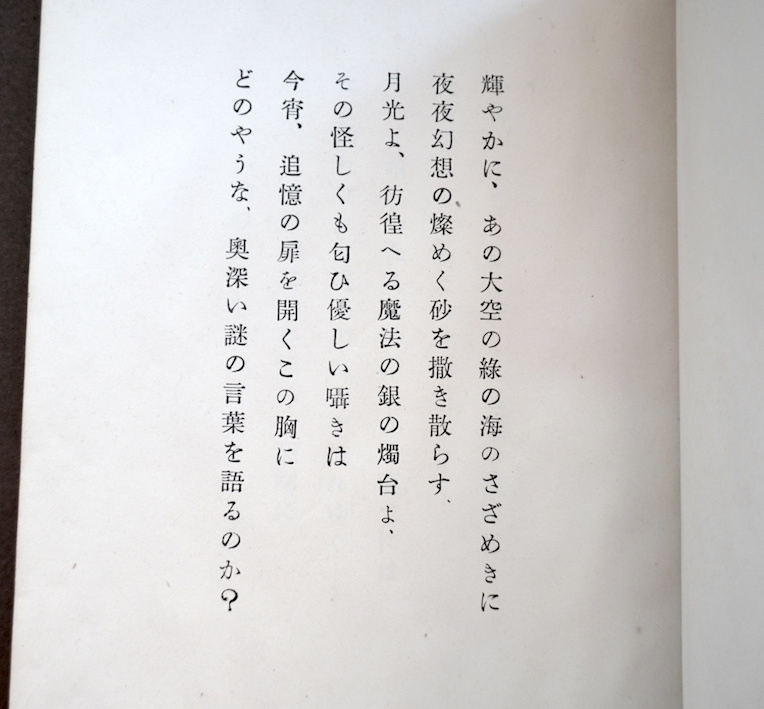 輝やかに、あの大空の綠の海のさざめきに
夜夜幻想の燦めく砂を撒き散らす、
月光よ、彷徨へる魔法の銀の燭台よ、
その怪しくも匂ひ優しい囁きは
今宵、追憶の扉を開くこの胸に
どのやうな、奥深い謎の言葉を語るのか?